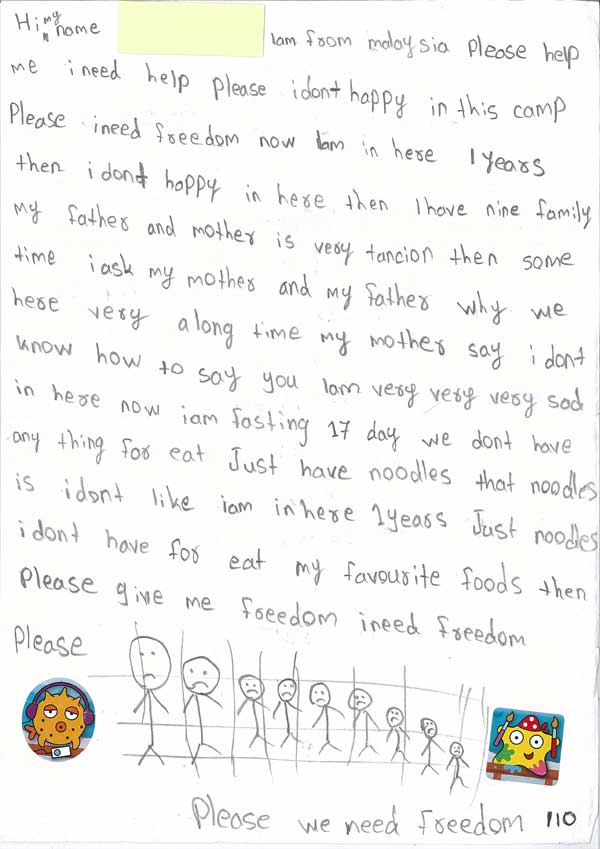 Hi my name
Iam from malaysia Please help
me i need help please i dont happy in this camp
Please ineed freedom now Iam in here 1 years
then i dont happy in here then I have nine family
my father and mother is very tancion then some
time i ask my mother and my father why we
here very a long time my mother say i dont
know how to say you Iam very very very sad
in here now iam fasting 17 day we dont have
any thing for eat Just have noodles that noodles
is i dont like iam in here 1 years Just noodles
i dont have for eat my favourite foods then
Please give me freedom ineed freedom
Please
Please we need freedom 110